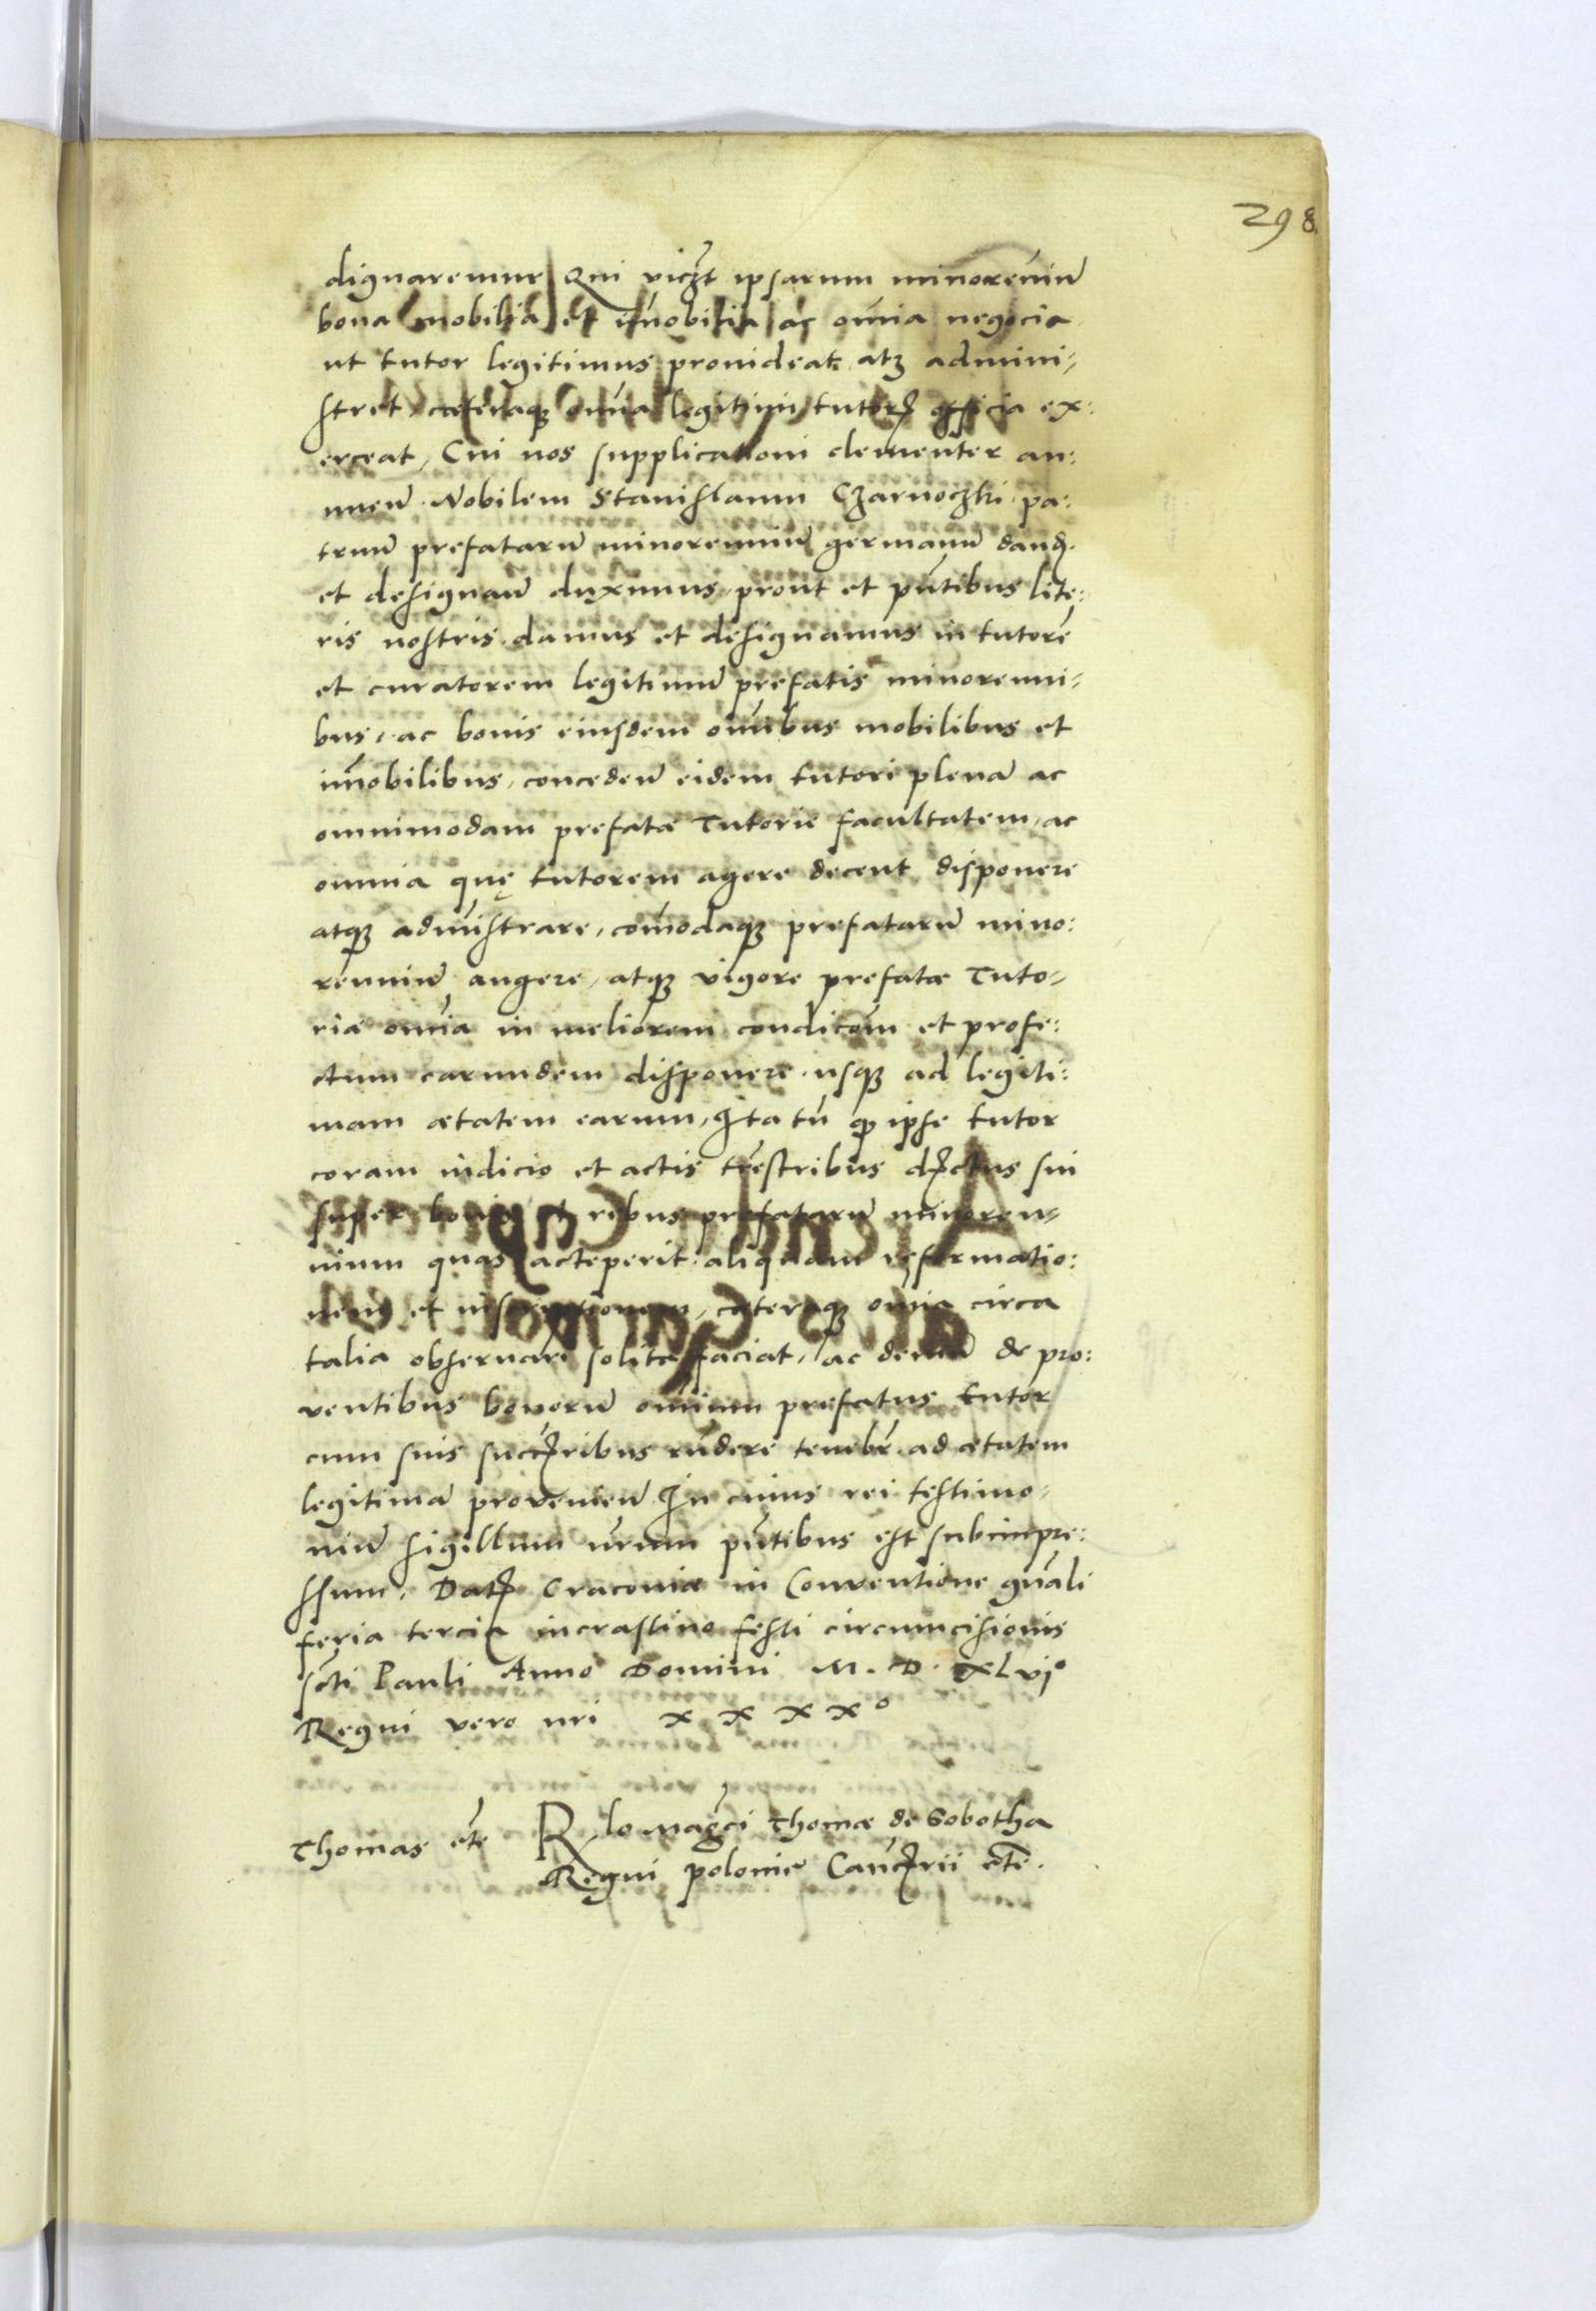 298.
dignaremur Qui viczt ipsarum minorenniū
bona mobilia et im̄obilia ac om̄ia negocia
ut tutor legitimus provideat atq₃ admini-
stret cæteraq₃ om̄ia legitimi tutoris officia ex:
erceat, Cui nos supplicationi clementer an:
nuen̄ Nobilem Stanislaum Czarnoczki pa:
truū prefatarū minorenniū germanū dand.
et designan̄ duximus prout et pn̄tibus lite:
ris nostris damus et designamus in tutorē
et curatorem legitimū prefatis minorenni-
bus, ac bonis eiusdem om̄ibus mobilibus et
im̄obilibus, conceden̄ eidem tutori plenā ac
omnimodam prefatæ Tutoriæ facultatem, ac
omnia quę tutorem agere decent disponere
atq₃ admistrare, com̄odaq₃ prefatarū mino:
renniū augere, atq₃ vigore prefatæ Tuto-
riæ om̄ia in meliorem condicōm et profe:
ctum earundem disponere usq₃ ad legiti:
mam ætatem earum, Ita tn̄ q̄ ipse tutor
coram iudicio et actis trēstribus districtus sui
super bonis et rebus prefatarū minoren-
nium quas acceperit aliquam reformatio:
nem et inscriptionem, cæteraq₃ om̄ia circa
talia observari solita faciat, ac demū de pro:
ventibus bonorū omnium prefatus tutor
cum suis succ̄oribus rn̄dere tenebr̄ ad ætatem
legitimā provenien̄ In cuius rei testimo-
niū sigillum nr̄um pn̄tibus est subimpre:
ssum. Dat Cracoviæ in Conventione gn̄ali
feria tercia in crastino festi circumcisionis
scti Pauli Anno Domini M. D. XLvj°
Regni vero nri x x x x°
Thomas etc̄ R̄lo Magc̄i Thomæ de Sobotha
Regni poloniæ Canc̄rii etc̄.